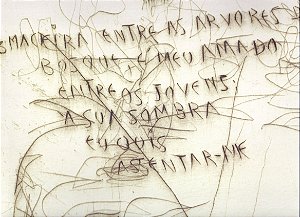 MACIEIRA ENTRE AS ARVORES
BOSQUE É MEU AMADO
ENTRE OS JOVENS;
A SUA SOMBRA
EU QUIS
ASENTAR-ME